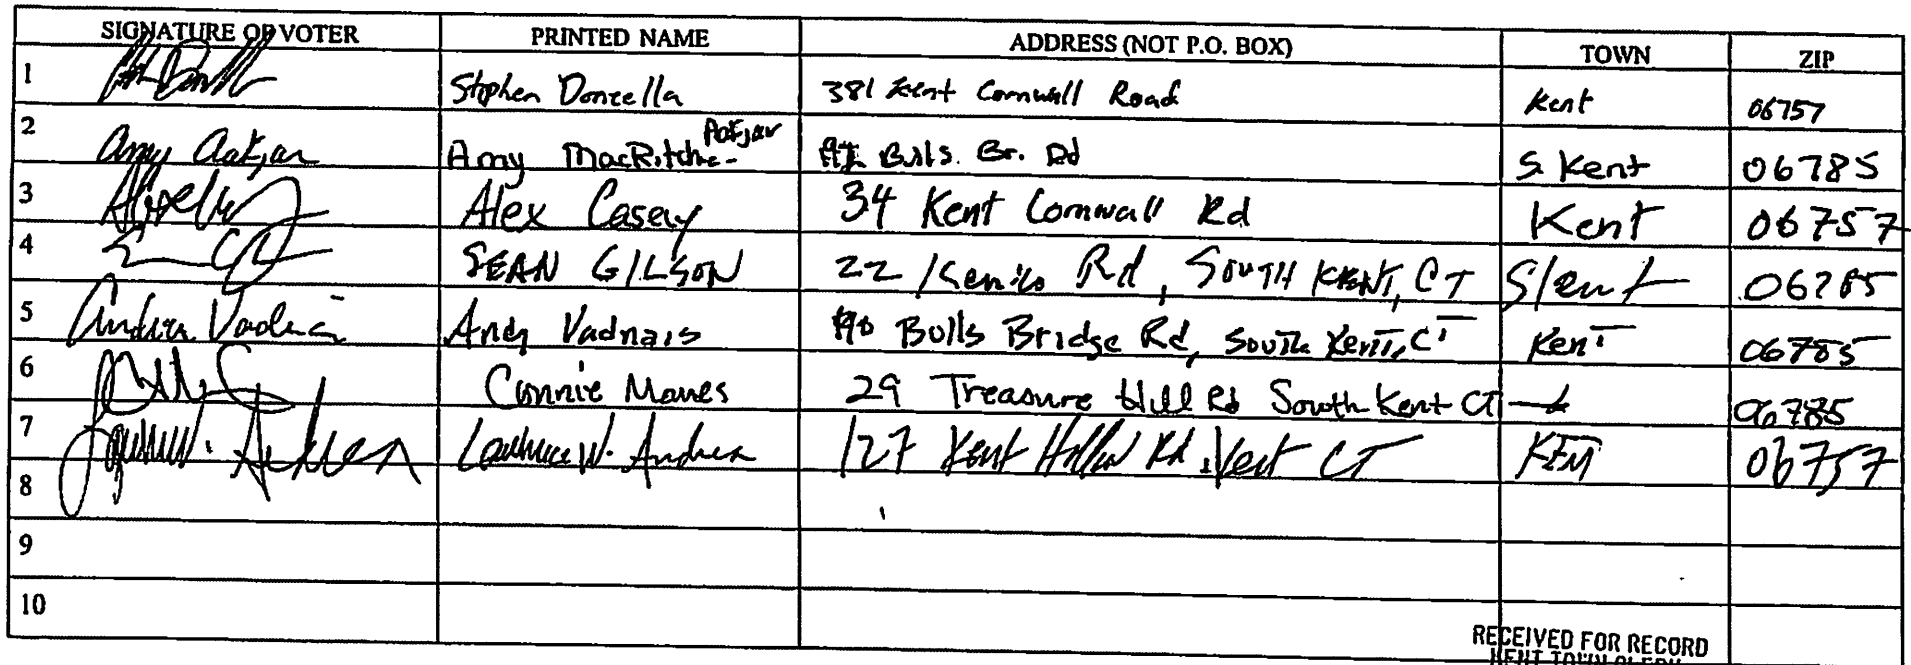 SIGNATURE OF VOTER PRINTED NAME ADDRESS (NOT P.O. BOX) TOWN ZIP
1 Stephen Donzella 381 Kent Cornwall Road Kent 06757
2 Amy Aakjar Amy MacRitchie- Aakjar Bulls. Br. Rd S Kent 06785
3 Alex Casey 34 Kent Cornwall Rd Kent 06757
4 SEAN GILSON 22 Rd, SOUTH KENT, CT S Kent 06785
5 Vadnais Andy Vadnais Bulls Bridge Rd, South Kent, CT Kent 06785
6 Connie Manes 29 Treasure Hill Rd South Kent CT 06785
7 W. Andren Laurence W. Andren 127 Kent Hollow Rd, Kent CT KENT 06757
8
9
10
RECEIVED FOR RECORD
KENT TOWN CLERK